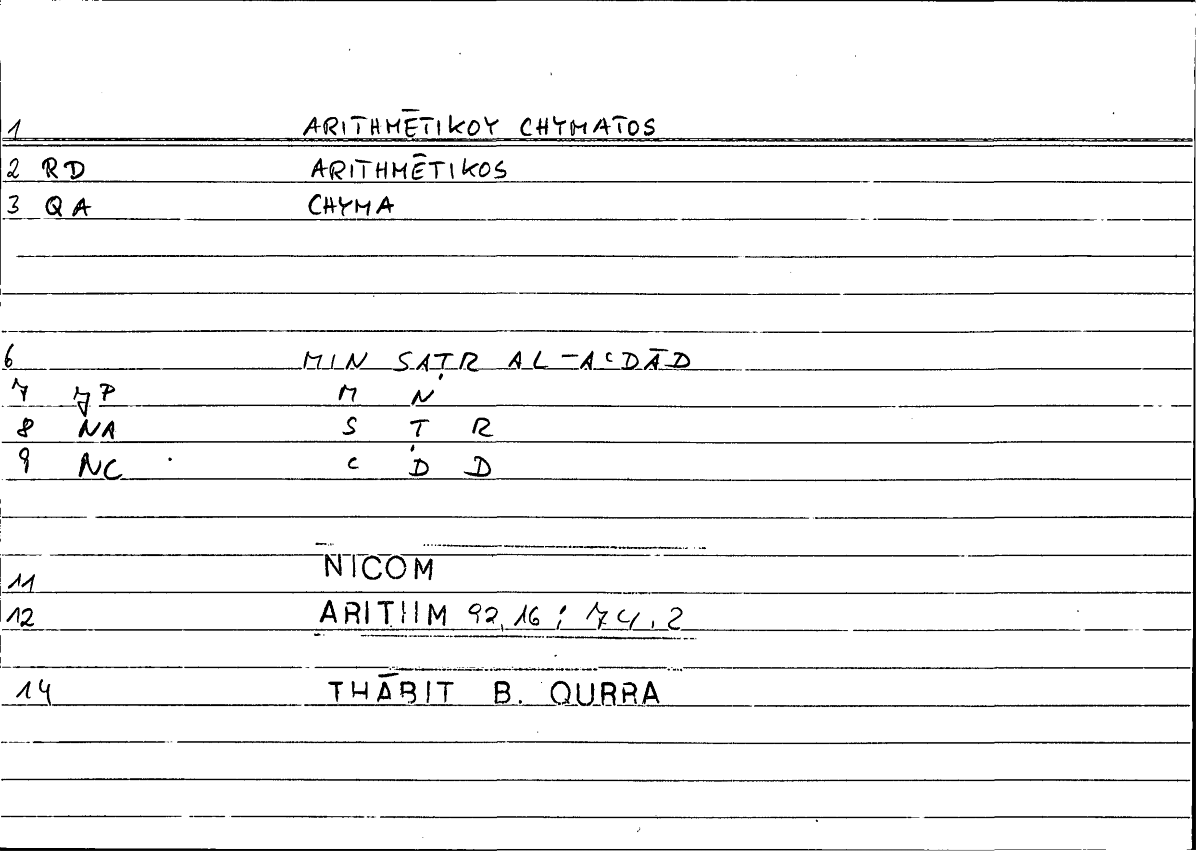 1 ARITHMĒTIKOY CHYMATOS
2 RD ARITHMĒTIKOS
3 QA CHYMA
6 MIN SAṬR AL-AʿDĀD
7 JP M N
8 NA S Ṭ R
9 NC ʿ D D
11 NICOM
12 ARITHM 92,16 ; 74,2
14 THĀBIT B. QURRA